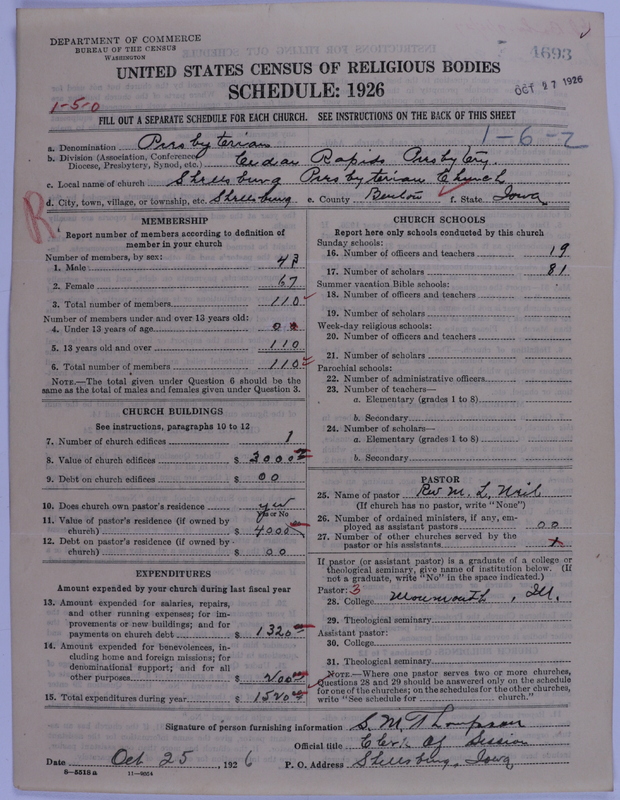 DEPARTMENT OF COMMERCE
BUREAU OF THE CENSUS
WASHINGTON
4693
UNITED STATES CENSUS OF RELIGIOUS BODIES
SCHEDULE: 1926
OCT 27 1926
1-5-0
FILL OUT A SEPARATE SCHEDULE FOR EACH CHURCH. SEE INSTRUCTIONS ON THE BACK OF THIS SHEET
1-6-2
a. Denomination Presbyterian
b. Division (Association, Conference, Diocese, Presbytery, Synod, etc.) Cedar Rapids Presbytery
c. Local name of church Shellsburg Presbyterian Church
d. City, town, village, or township, etc. Shellsburg e. County Benton f. State Iowa
R
MEMBERSHIP
Report number of members according to definition of member in your church
Number of members, by sex:
1. Male 43
2. Female 67
3. Total number of members 110
Number of members under and over 13 years old:
4. Under 13 years of age 0
5. 13 years old and over 110
6. Total number of members 110
NOTE.—The total given under Question 6 should be the same as the total of males and females given under Question 3.
CHURCH BUILDINGS
See instructions, paragraphs 10 to 12
7. Number of church edifices 1
8. Value of church edifices $ 3000
9. Debt on church edifices $ 00
10. Does church own pastor's residence? yes
Yes or No
11. Value of pastor's residence (if owned by church) $ 4000
12. Debt on pastor's residence (if owned by church) $ 00
EXPENDITURES
Amount expended by your church during last fiscal year
13. Amount expended for salaries, repairs, and other running expenses; for improvements or new buildings; and for payments on church debt $ 1320
14. Amount expended for benevolences, including home and foreign missions; for denominational support; and for all other purposes $ 200
15. Total expenditures during year $ 1520
CHURCH SCHOOLS
Report here only schools conducted by this church
Sunday schools:
16. Number of officers and teachers 19
17. Number of scholars 81
Summer vacation Bible schools:
18. Number of officers and teachers
19. Number of scholars
Week-day religious schools:
20. Number of officers and teachers
21. Number of scholars
Parochial schools:
22. Number of administrative officers
23. Number of teachers—
a. Elementary (grades 1 to 8)
b. Secondary
24. Number of scholars—
a. Elementary (grades 1 to 8)
b. Secondary
PASTOR
25. Name of pastor Rev M. L.
(If church has no pastor, write "None")
26. Number of ordained ministers, if any, employed as assistant pastors 00
27. Number of other churches served by the pastor or his assistants
If pastor (or assistant pastor) is a graduate of a college or theological seminary, give name of institution below. (If not a graduate, write "No" in the space indicated.)
Pastor: 3
28. College Monmouth, Ill.
29. Theological seminary
Assistant pastor:
30. College
31. Theological seminary
NOTE.—Where one pastor serves two or more churches, Questions 28 and 29 should be answered only on the schedule for one of the churches; on the schedules for the other churches, write "See schedule for church."
Signature of person furnishing information S. M. Thompson
Official title Clerk of Session
Date Oct 25, 1926 P. O. Address Shellsburg, Iowa
8-5518 a 11-9054